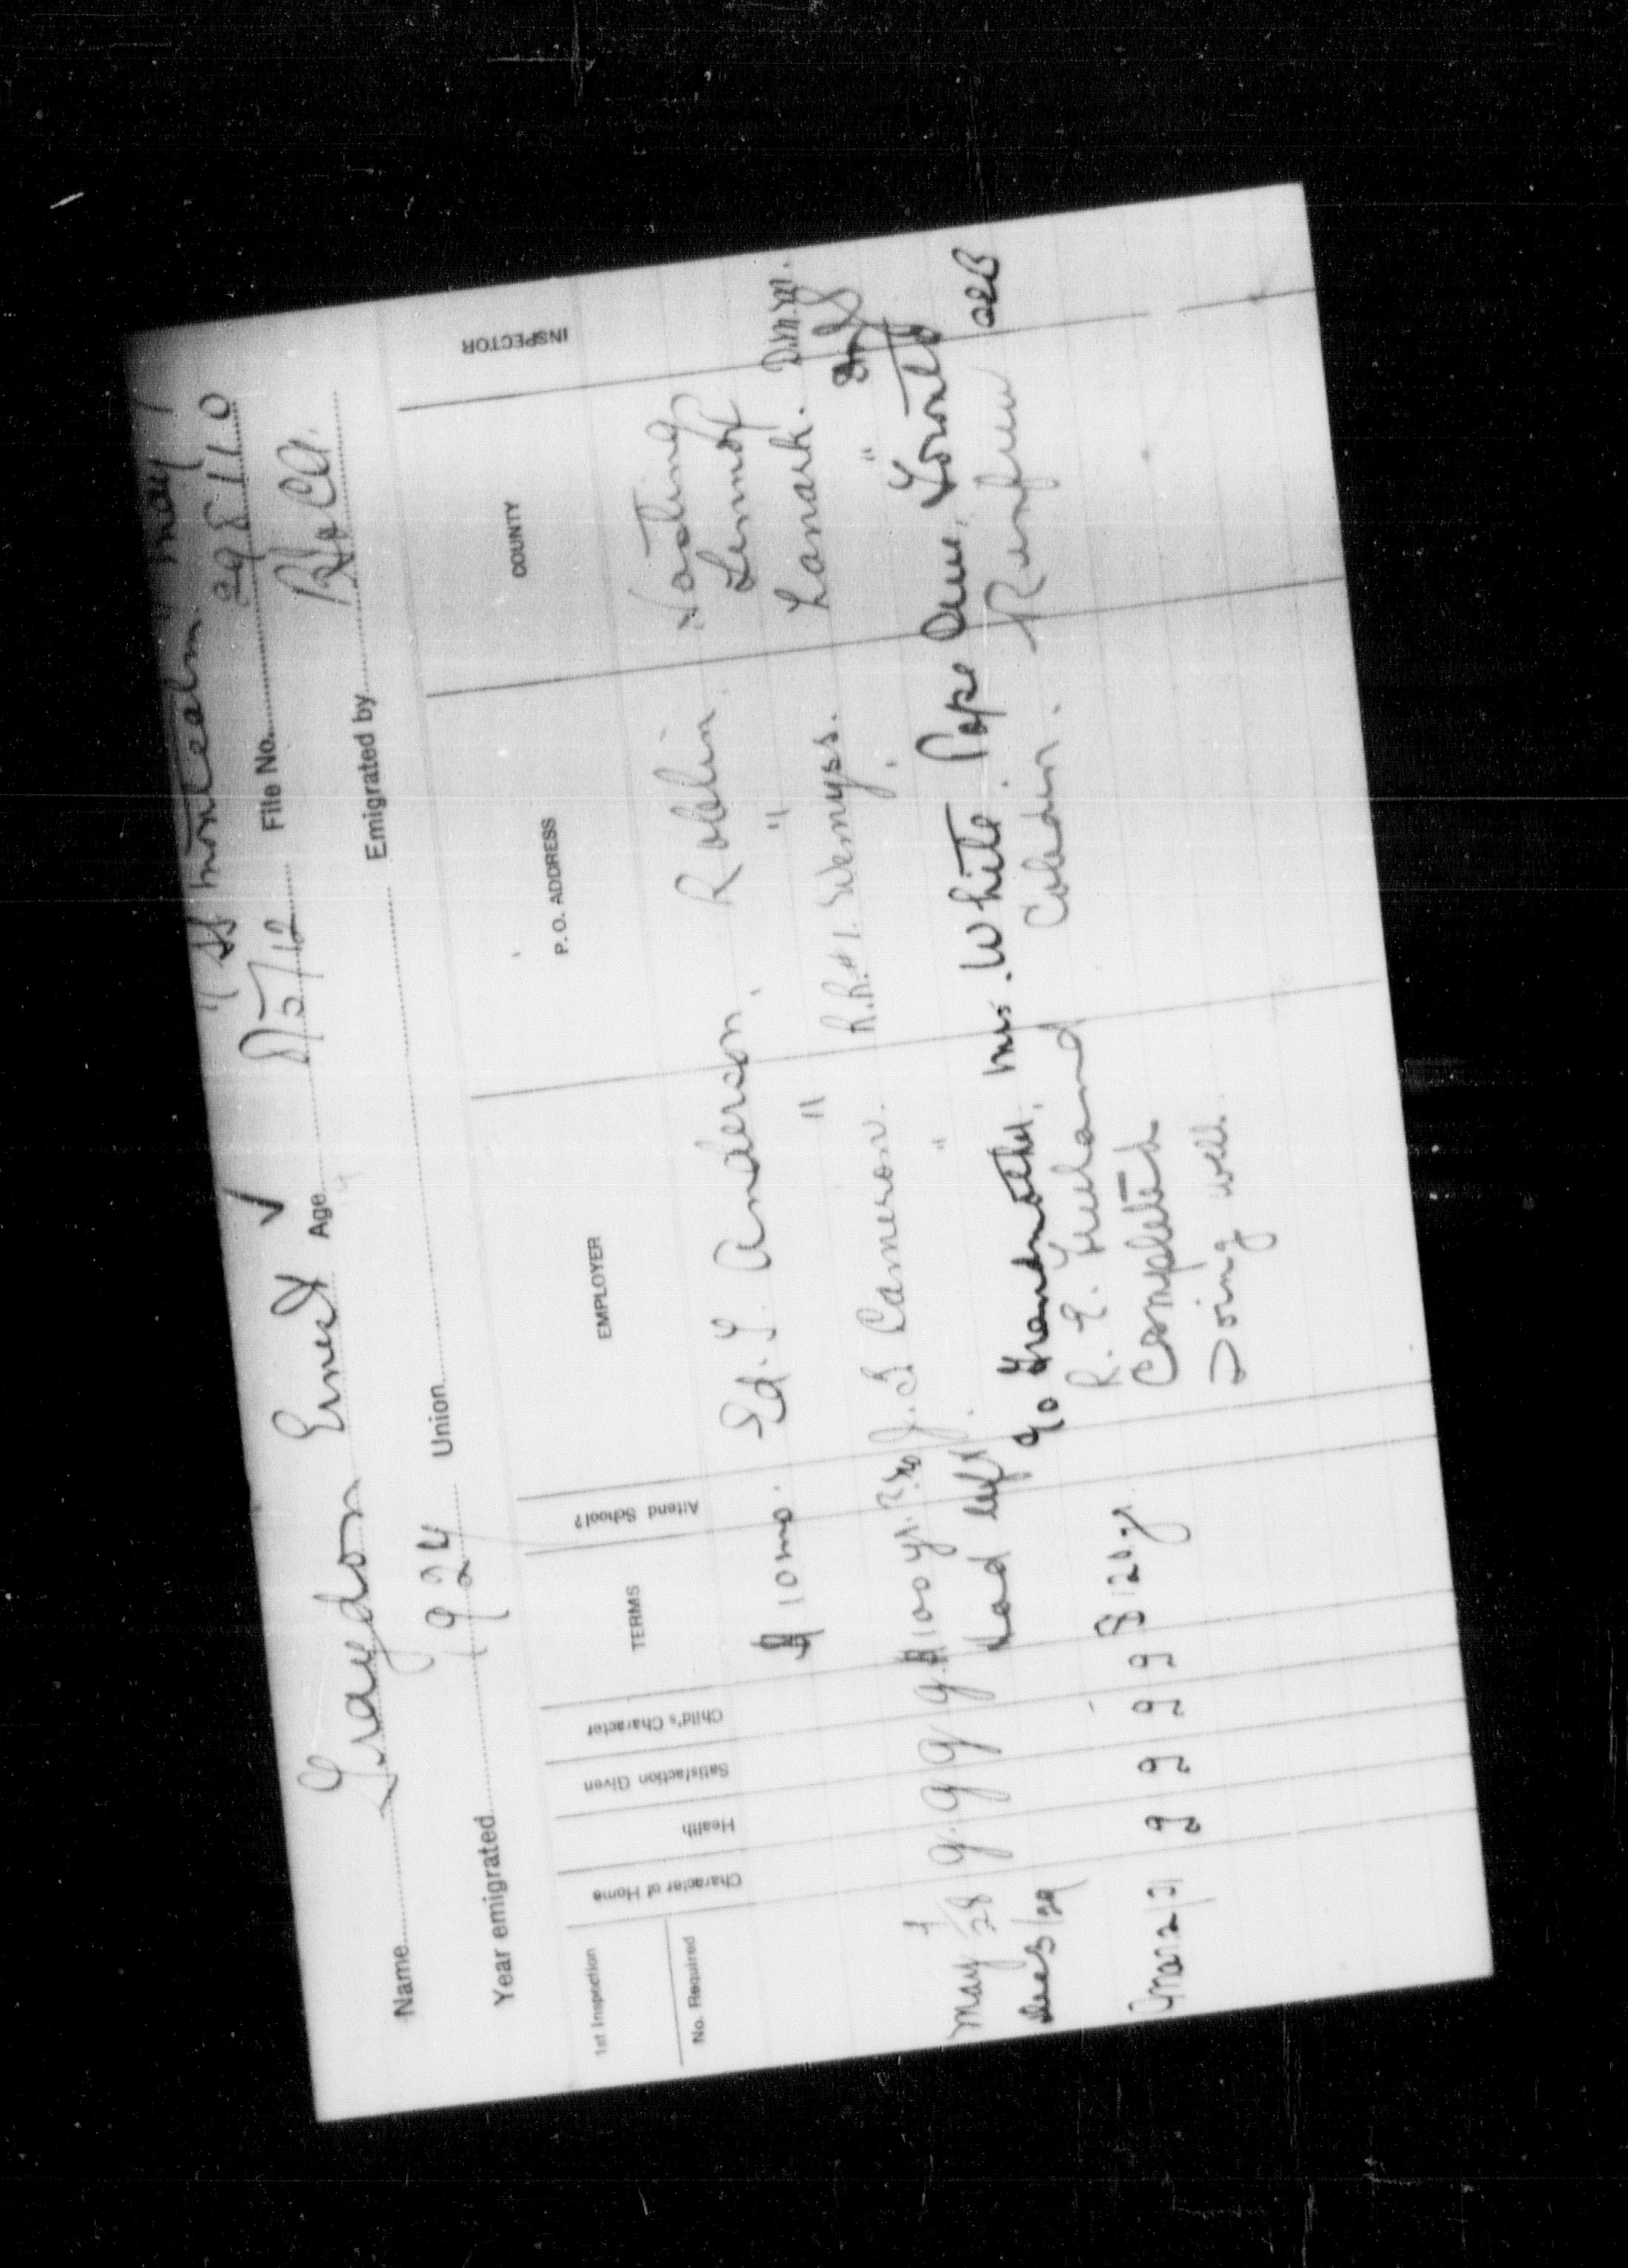 SS Montcalm May 1
Name Graydon Ernest ✓ Age 5/12 File No. 29 E 110
Year emigrated 1924 Union Emigrated by
1st Inspection
No. Required
Character of Home
Health
Satisfaction Given
Child's Character
TERMS
Attend School?
EMPLOYER
P. O. ADDRESS
COUNTY
INSPECTOR
$10 mo. Ed. T. Anderson. Roblin Hastings
" " Lennox
May 1/28 g. g g g. $100 yr. no J. S. Cameron. R.R.#1. Wemyss. Lanark. D.M.M.
Dec 3/29 Had left. " "
c/o Grandmother, Mrs. White. Pape Ave. Toronto
Mar 2 31 g g g g $120 yr R. E. Cobden. Renfrew
Completed
Doing well.